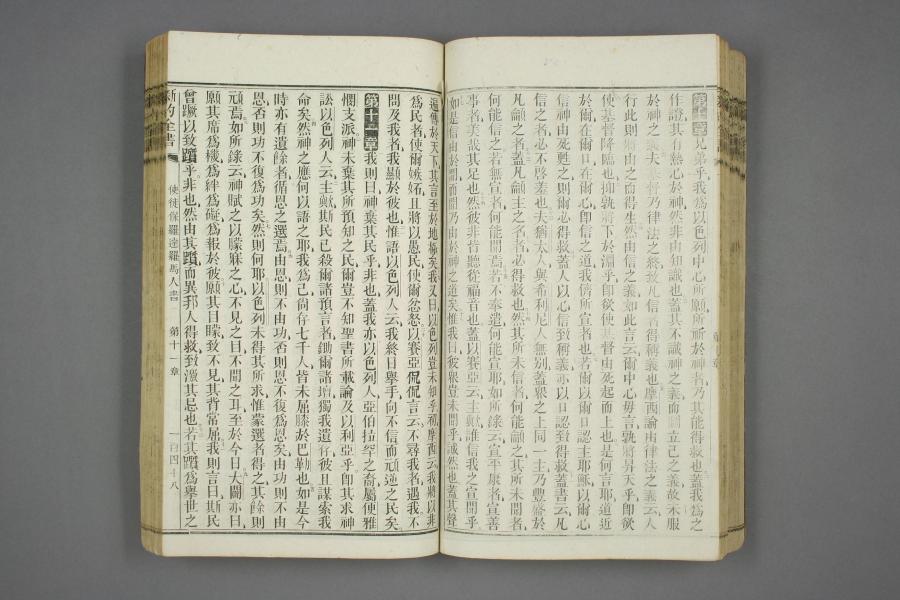 第十章兄弟乎我爲以色列中心所願所祈於神者乃其能得救也蓋我爲之
作證其有熱心於神然非由知識也蓋其不識神之義而圖立己之義故未服
於神之義夫基督乃律法之終致凡信者得稱義也摩西論由律法之義云人
行此則將由之而得生然由信之義如此言云爾中心毋言孰將昇天乎卽欲
使基督降臨也抑孰將下於淵乎卽欲使基督由死起而上也是何言耶道近
於爾在爾口在爾心卽信之道我儕所宣者也若爾以爾口認主耶穌以爾心
信神由死甦之則爾必得救蓋人以心信致稱義亦以口認致得救蓋書云凡
信之者必不啓羞也夫猶太人與希利尼人無別蓋衆之上同一主乃豐盛於
凡龥之者蓋凡龥主之名者必得救也然其所未信者何能龥之其所未聞者
何能信之若無宣者何能聞焉若不奉遣何能宣耶如所錄云宣平康者宣善
事者美哉其足也然彼非皆聽從福音也蓋以賽亞云主歟誰信我之宣聞乎
如是信由於聞而聞乃由於神之道矣惟我曰彼衆豈未聞乎誠然也蓋其聲
遍傳於天下其言至於地極矣我又曰以色列豈未知乎初摩西云我將以非
爲民者使爾嫉妬且將以愚民使爾忿怒以賽亞侃侃言云不尋我者遇我不
問及我者我顯於彼也惟語以色列人云我終日舉手向不信而頑逆之民矣
第十一章我則曰神棄其民乎非也蓋我亦以色列人亞伯拉罕之裔屬便雅
憫支派神未棄其所預知之民爾豈不知聖書所載論及以利亞乎卽其求神
訟以色列人云主歟斯民已殺爾諸預言者鋤爾諸壇獨我遺存彼且謀索我
命矣然神之應何以語之耶我爲己尙存七千人皆未屈膝於巴勒也如是今
時亦有遺餘者循恩之選焉由恩則不由功否則恩不復爲恩矣由功則不由
恩否則功不復爲功矣然則何耶以色列未得其所求惟蒙選者得之其餘則
頑焉如所錄云神賦之以矇眛之心不見之目不聞之耳至於今日大闢亦曰
願其席爲機爲絆爲礙爲報於彼願其目矇致不見其背常屈我則言曰斯民
曾蹶以致躓乎非也然由其躓而異邦人得救致激其忌也若其躓爲舉世之
新約全書 使徒保羅達羅馬人書 第十一章 百四十八